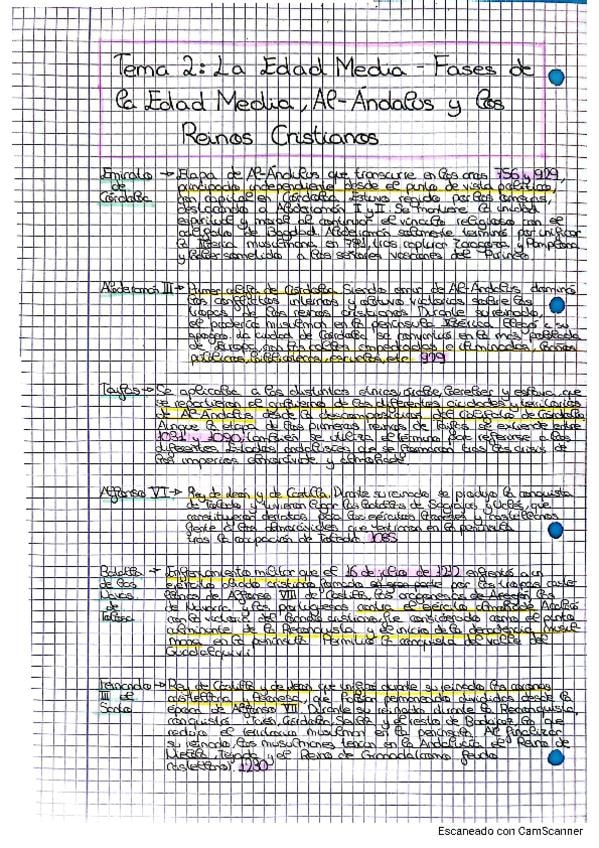 Tema 2: La Edad Media - Fases de
la Edad Media, Al-Ándalus y los
Reinos Cristianos
Emirato → Etapa de Al-Ándalus que transcurre en los años 756 y 929,
de principado independiente desde el punto de vista político,
Córdoba con capital en Córdoba. Estuvo regido por los omeyas,
destacando a Abderramán I y II. Se mantiene la unidad
espiritual y moral al continuar el vínculo religioso con el
califato de Bagdad. Abderramán solamente terminó por unificar
la Iberia musulmana en 781, tras capturar Zaragoza y Pamplona
y haber sometido a los señores vascones del Pirineo
Abderramán III → Primer califa de Córdoba. Siendo emir de Al-Ándalus dominó
los conflictos internos y obtuvo victorias sobre las
tropas de los reinos cristianos. Durante su reinado,
el poderío musulmán en la península Ibérica llegó a su
apogeo. La ciudad de Córdoba se convirtió en la más poblada
de Europa, con las calles empedradas e iluminadas, baños
públicos, bibliotecas, escuelas, etc. 929
Taifas → Se aplicaba a los distintos clanes, árabe, bereber y eslavo, que
se repartieron el gobierno de las diferentes ciudades y territorios
de Al-Ándalus desde la descomposición del califato de Córdoba.
Aunque la etapa de los primeros reinos de Taifas se extiende entre
1031 y 1090, también se utiliza el término para referirse a los
diferentes Estados andalusíes que se formaron tras las crisis de
los imperios almorávide y almohade.
Alfonso VI → Rey de León y de Castilla. Durante su reinado se produjo la conquista
de Toledo y tuvieron lugar las batallas de Sagrajas y Uclés, que
constituyeron derrotas para las leonesas y castellanas
frente a los almorávides que entraron en la península
tras la ocupación de Toledo. 1085
Batalla → Enfrentamiento militar que el 16 de julio de 1212 enfrentó a un
de las ejército aliado cristiano formado por las tropas caste
Navas llanas de Alfonso VIII de Castilla, los aragoneses de Aragón, los
de de Navarra y los portugueses contra el ejército almohade. Acabó
Tolosa con la victoria del bando cristiano, fue considerada como el punto
culminante de la Reconquista y el inicio de la decadencia musul
mana en la península. Permitió la conquista del valle del
Guadalquivir.
Fernando → Rey de Castilla y de León, que unificó durante su reinado las coronas
III el castellana y leonesa, que habían permanecido divididas desde la
Santo época de Alfonso VII. Durante su reinado, durante la Reconquista,
conquistó Jaén, Córdoba, Sevilla y el resto de Badajoz, lo que
redujo el territorio musulmán en la península. Al finalizar
su reinado, los musulmanes tenían en la Andalucía el Reino de
Niebla, Tejada y el Reino de Granada (como feudo
castellano). 1230
Escaneado con CamScanner